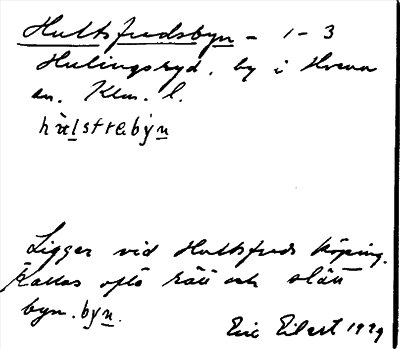 Hultsfredsbyn - 1-3
Hulingsryd, by i Hvena
sn. Klm. l.
hùlstrebýn
Ligger vid Hultsfreds köping.
Kallas ofta rätt och slätt
byn. byn.
Eric Eilert 1929